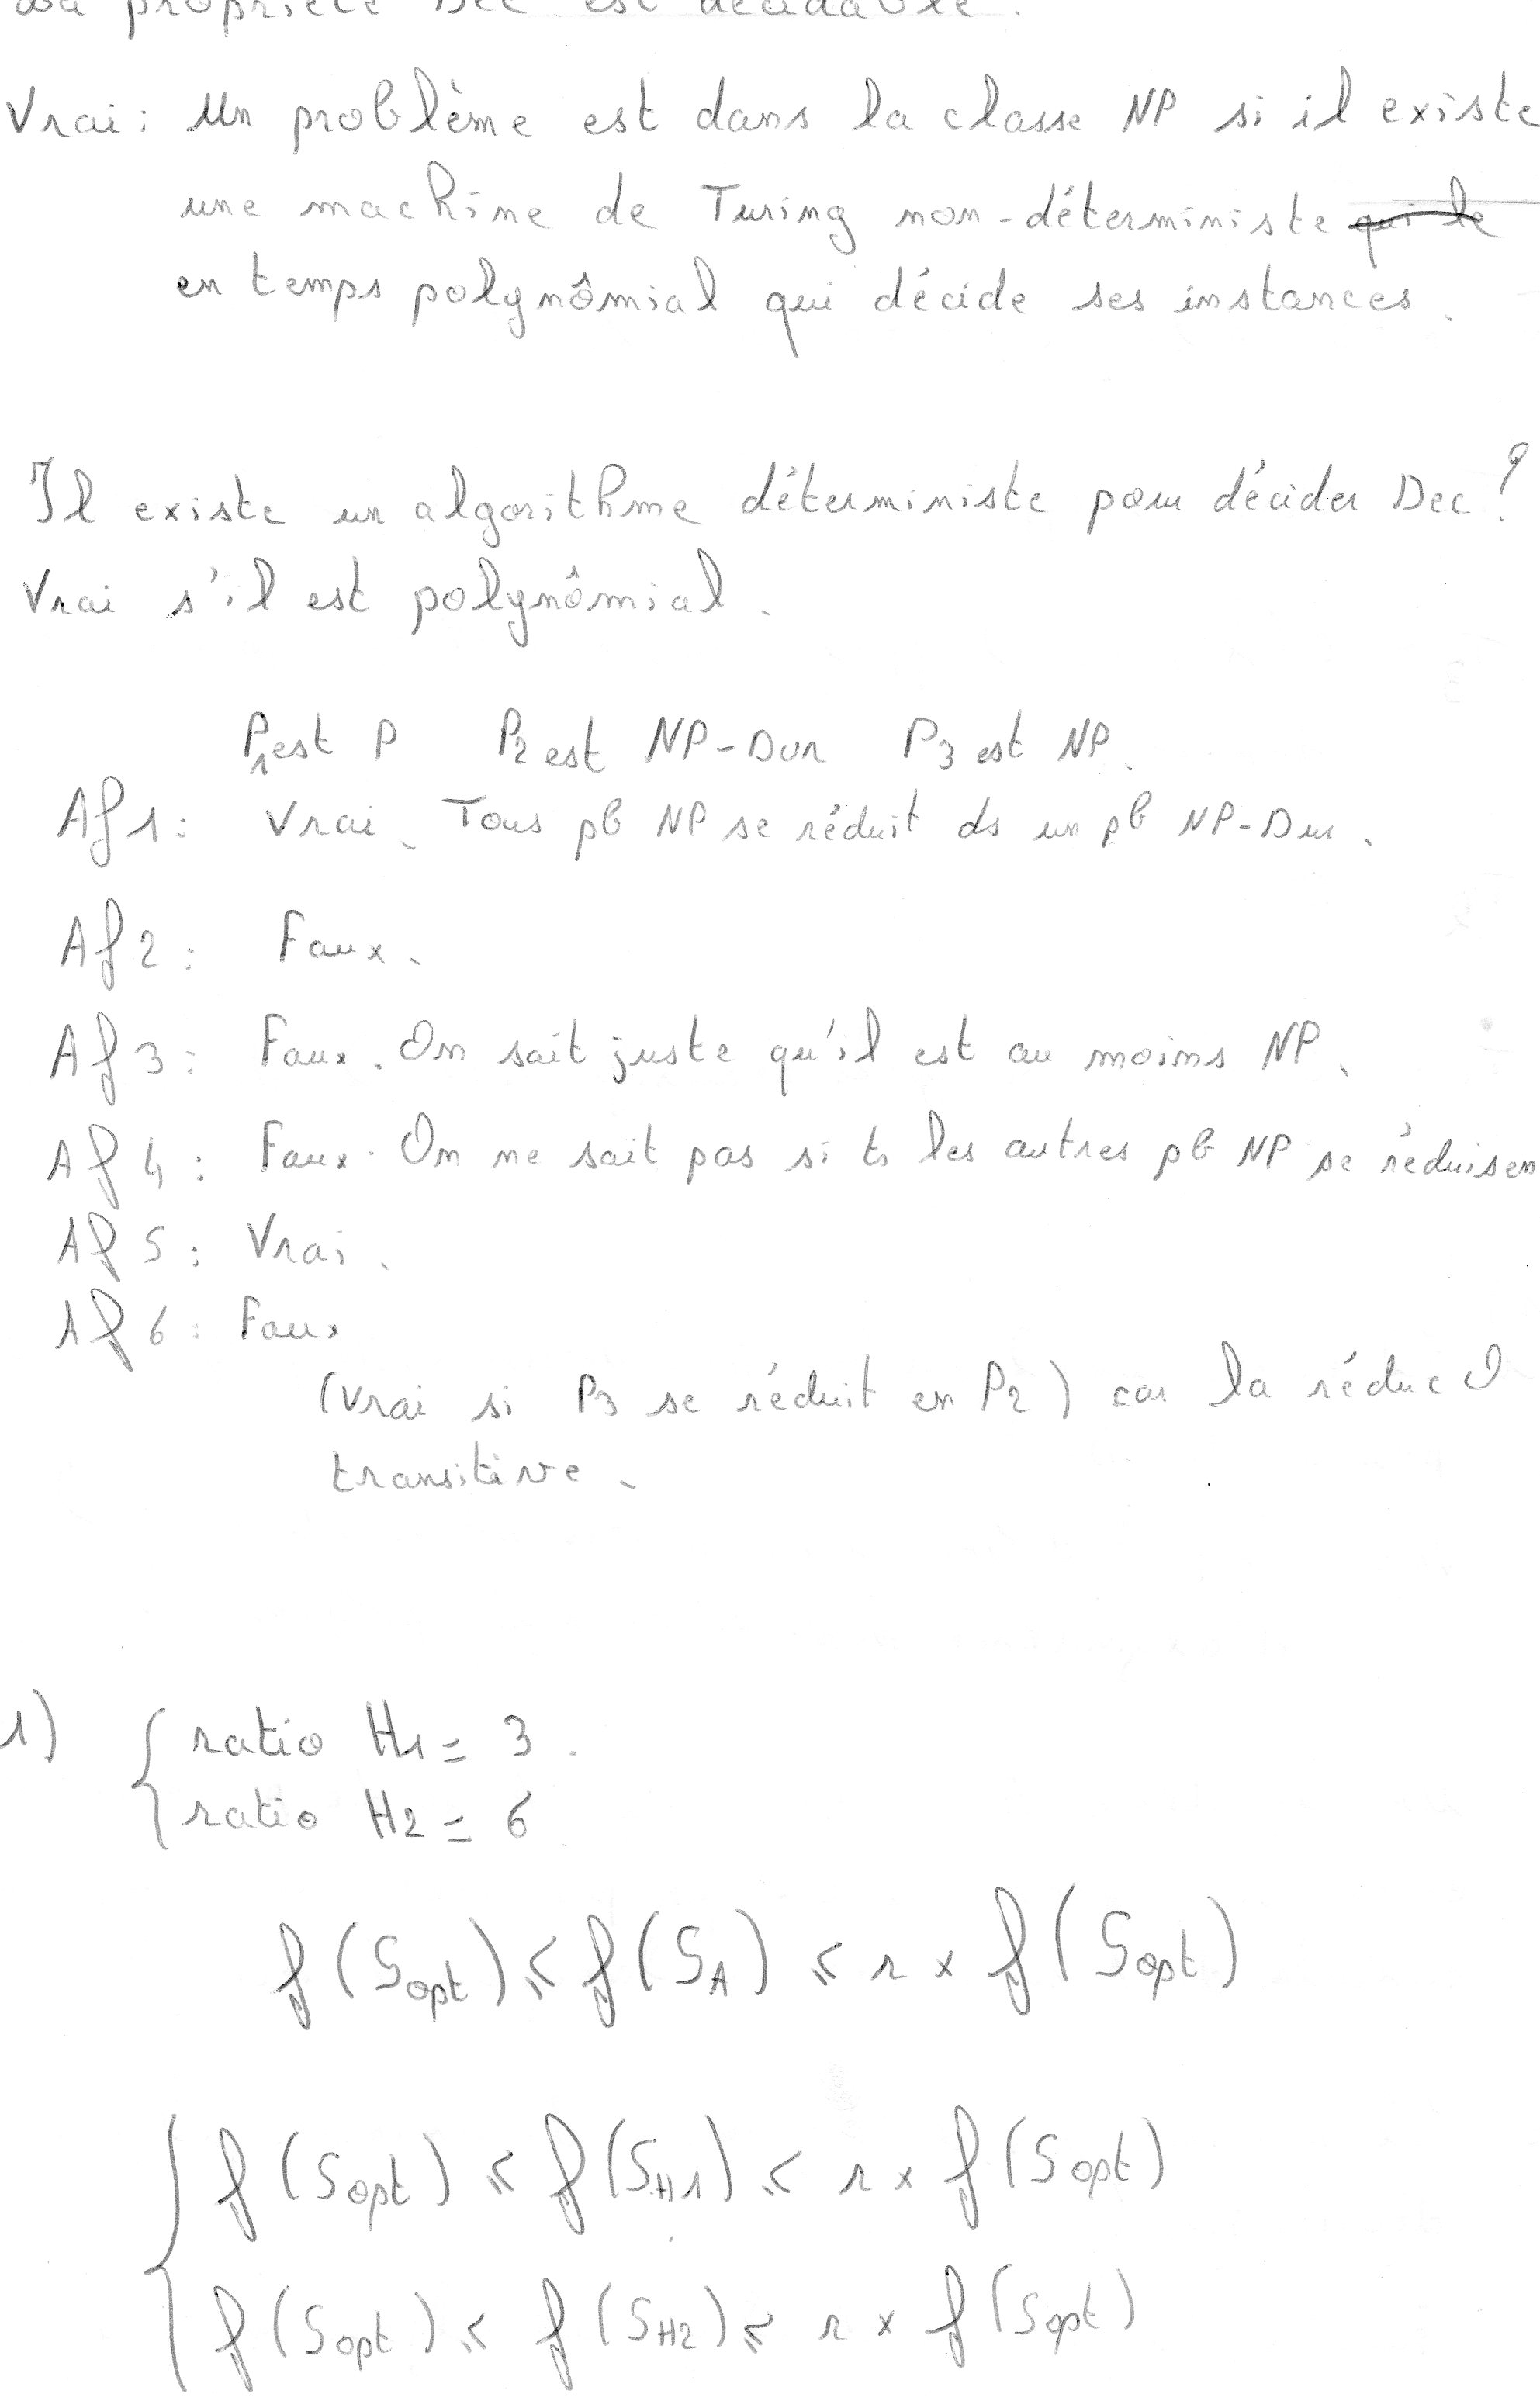 La propriété Dec est décidable.
Vrai : Un problème est dans la classe NP si il existe
une machine de Turing non-déterministe qui le
en temps polynômial qui décide ses instances.
Il existe un algorithme déterministe pour décider Dec ?
Vrai s'il est polynômial.
P1 est P P2 est NP-Dur P3 est NP.
Af 1 : Vrai. Tous pb NP se réduit ds un pb NP-Dur.
Af 2 : Faux.
Af 3 : Faux. On sait juste qu'il est au moins NP.
Af 4 : Faux. On ne sait pas si ts les autres pb NP se réduisen
Af 5 : Vrai.
Af 6 : Faux
(Vrai si P3 se réduit en P2) car la réduc
transitive.
1) { ratio H1 = 3.
ratio H2 = 6
f(Sopt) ≤ f(SA) ≤ r × f(Sopt)
{ f(Sopt) ≤ f(SH1) ≤ r × f(Sopt)
f(Sopt) ≤ f(SH2) ≤ r × f(Sopt)